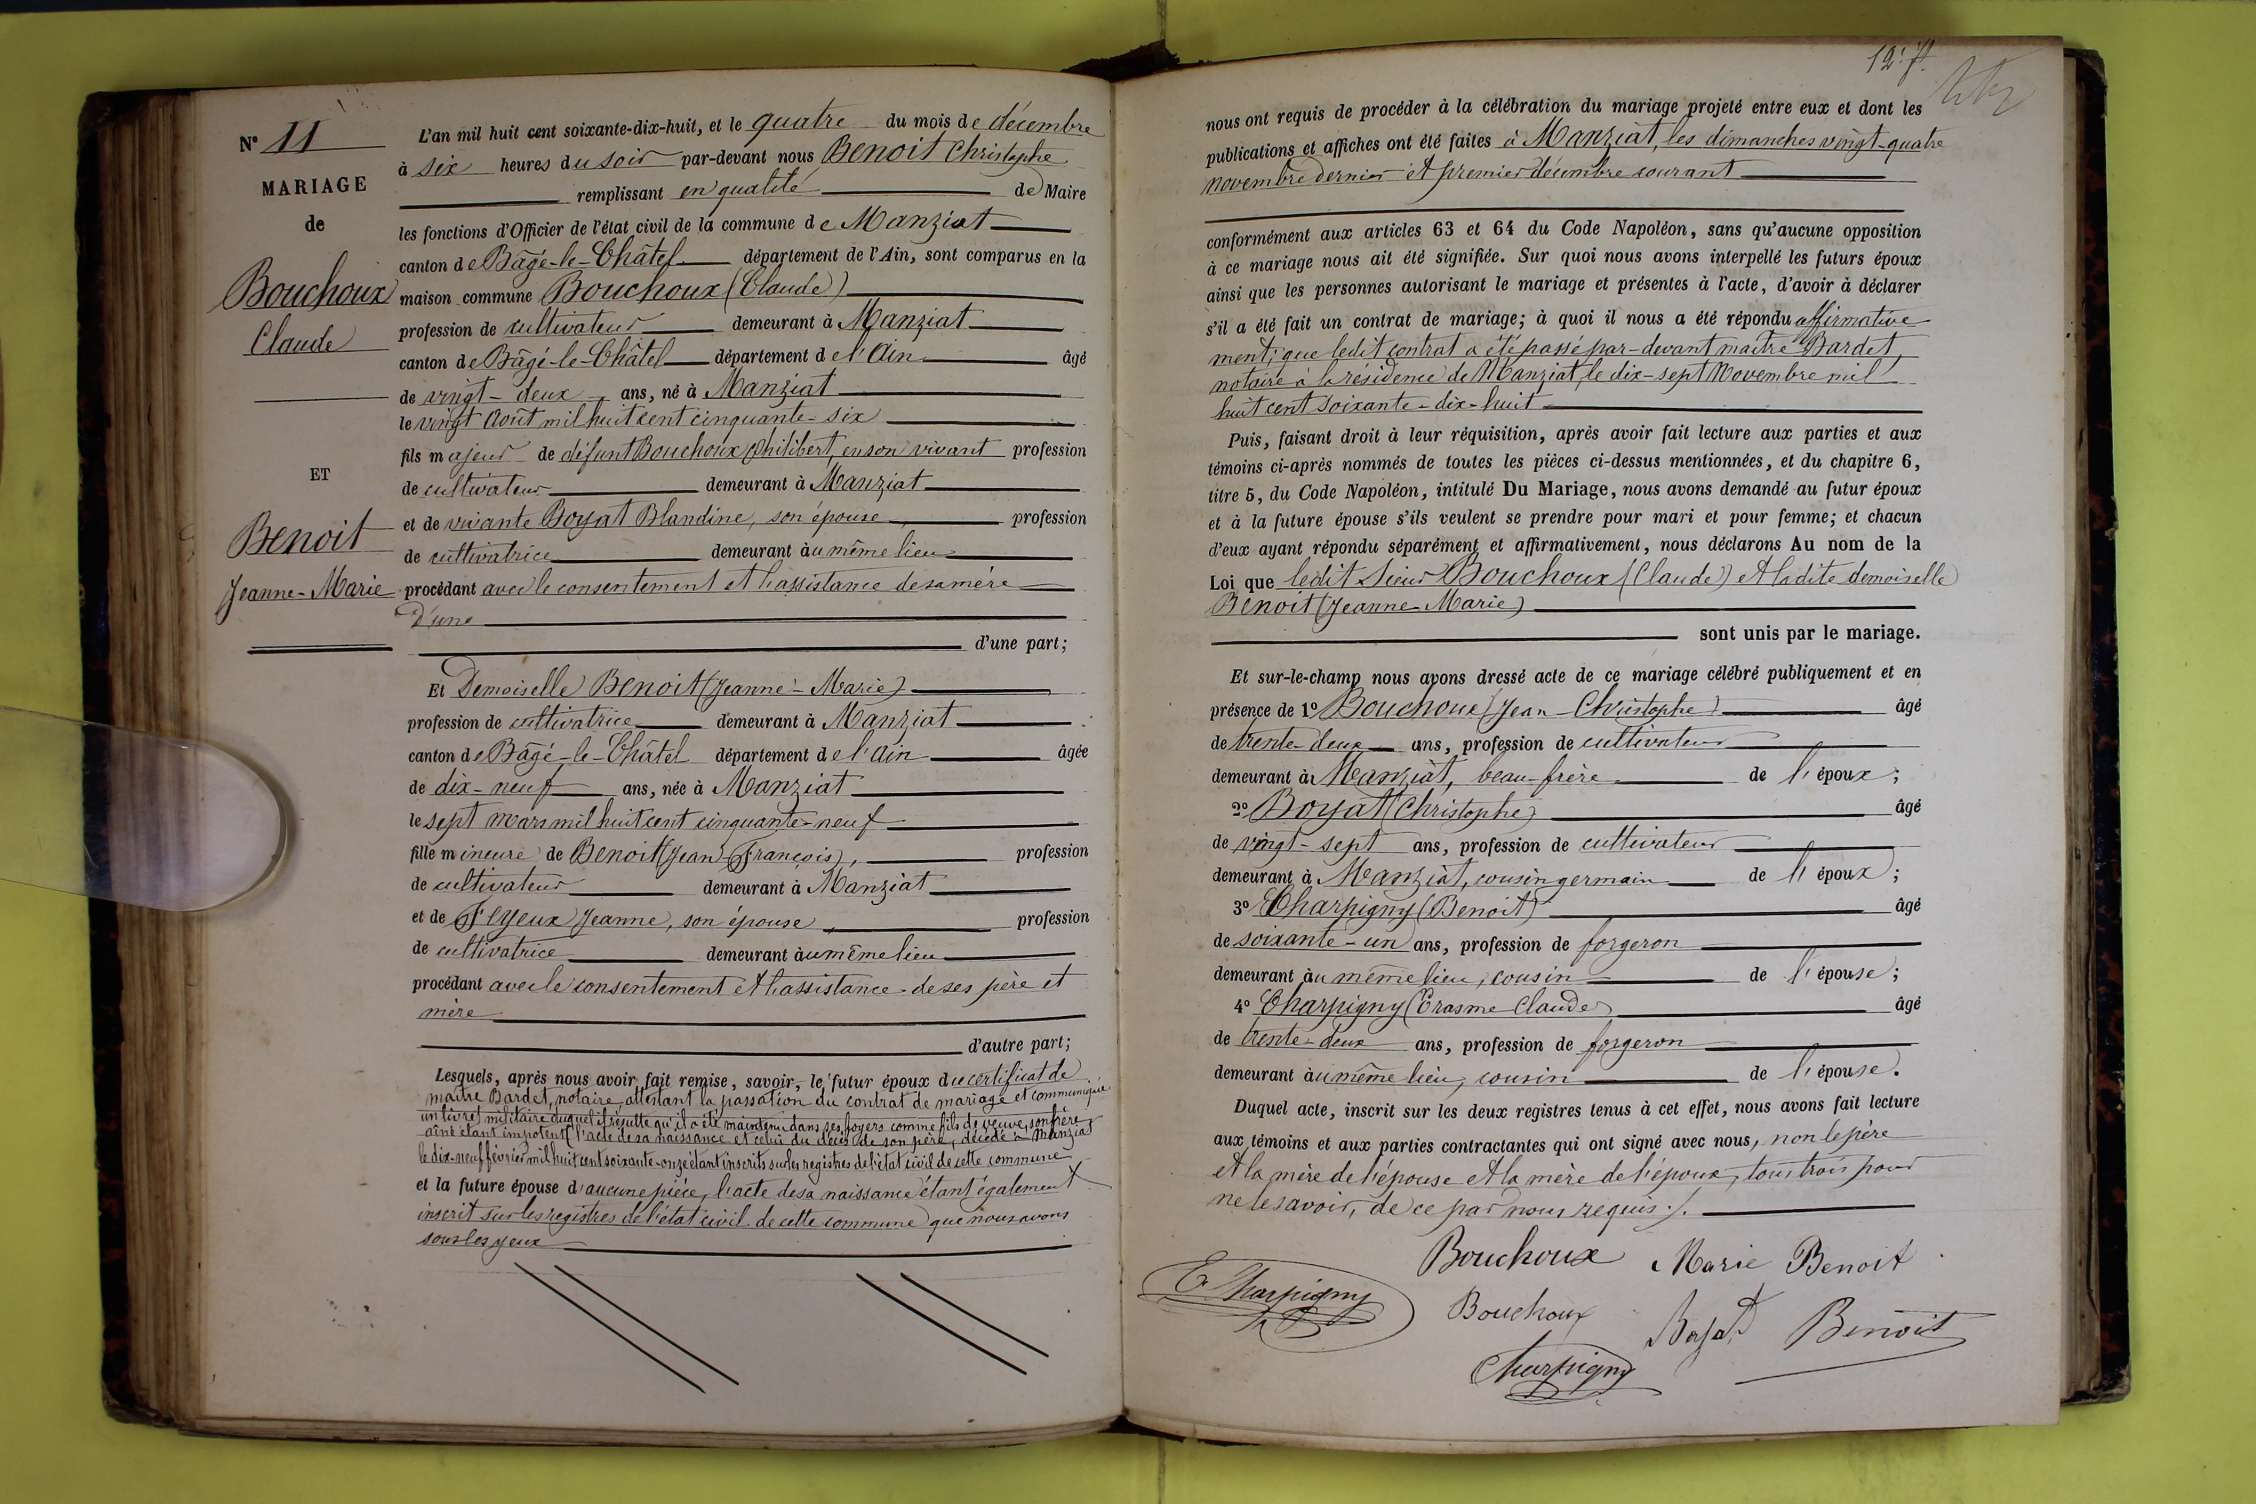 N° 11
MARIAGE
de
Bouchoux
Claude
ET
Benoit
Jeanne-Marie
L'an mil huit cent soixante-dix-huit, et le quatre du mois de décembre
à six heures du soir par-devant nous Benoit Christophe
remplissant en qualité de Maire
les fonctions d'Officier de l'état civil de la commune de Manziat
canton de Bâgé-le-Châtel département de l'Ain, sont comparus en la
maison commune Bouchoux (Claude)
profession de cultivateur demeurant à Manziat
canton de Bâgé-le-Châtel département de l'Ain âgé
de vingt-deux ans, né à Manziat
le vingt Août mil huit cent cinquante-six
fils majeur de défunt Bouchoux Philibert, en son vivant profession
de cultivateur demeurant à Manziat
et de vivante Boyat Blandine, son épouse, profession
de cultivatrice demeurant au même lieu
procédant avec le consentement et l'assistance de sa mère
D'une
d'une part;
Et Demoiselle Benoit (Jeanne-Marie)
profession de cultivatrice demeurant à Manziat
canton de Bâgé-le-Châtel département de l'Ain âgée
de dix-neuf ans, née à Manziat
le sept mars mil huit cent cinquante-neuf
fille mineure de Benoit (Jean-François), profession
de cultivateur demeurant à Manziat
et de Feyeux Jeanne, son épouse, profession
de cultivatrice demeurant au même lieu
procédant avec le consentement et l'assistance de ses père et
mère
d'autre part;
Lesquels, après nous avoir fait remise, savoir, le futur époux du certificat de
maître Bardet, notaire, attestant la passation du contrat de mariage et communiqué
un livret militaire duquel il résulte qu'il a été maintenu dans ses foyers comme fils de veuve, son frère
aîné étant impotent (l'acte de sa naissance et celui du décès de son père, décédé à Manziat
le dix-neuf février mil huit cent soixante-onze étant inscrits sur les registres de l'état civil de cette commune
et la future épouse d'aucune pièce, l'acte de sa naissance étant également
inscrit sur les registres de l'état civil de cette commune que nous avons
sous les yeux
nous ont requis de procéder à la célébration du mariage projeté entre eux et dont les
publications et affiches ont été faites à Manziat, les dimanches vingt-quatre
novembre dernier et premier décembre courant
conformément aux articles 63 et 64 du Code Napoléon, sans qu'aucune opposition
à ce mariage nous ait été signifiée. Sur quoi nous avons interpellé les futurs époux
ainsi que les personnes autorisant le mariage et présentes à l'acte, d'avoir à déclarer
s'il a été fait un contrat de mariage; à quoi il nous a été répondu affirmative
ment; que ledit contrat a été passé par-devant maître Bardet,
notaire à la résidence de Manziat, le dix-sept Novembre mil
huit cent soixante-dix-huit
Puis, faisant droit à leur réquisition, après avoir fait lecture aux parties et aux
témoins ci-après nommés de toutes les pièces ci-dessus mentionnées, et du chapitre 6,
titre 5, du Code Napoléon, intitulé Du Mariage, nous avons demandé au futur époux
et à la future épouse s'ils veulent se prendre pour mari et pour femme; et chacun
d'eux ayant répondu séparément et affirmativement, nous déclarons Au nom de la
Loi que ledit Sieur Bouchoux (Claude) et ladite demoiselle
Benoit (Jeanne-Marie)
sont unis par le mariage.
Et sur-le-champ nous avons dressé acte de ce mariage célébré publiquement et en
présence de 1° Bouchoux (Jean-Christophe) âgé
de trente-deux ans, profession de cultivateur
demeurant à Manziat, beau-frère de l'époux;
2° Boyat (Christophe) âgé
de vingt-sept ans, profession de cultivateur
demeurant à Manziat, cousin germain de l'époux;
3° Charpigny (Benoit) âgé
de soixante-un ans, profession de forgeron
demeurant au même lieu, cousin de l'épouse;
4° Charpigny (Erasme Claude) âgé
de trente-deux ans, profession de forgeron
demeurant au même lieu, cousin de l'épouse.
Duquel acte, inscrit sur les deux registres tenus à cet effet, nous avons fait lecture
aux témoins et aux parties contractantes qui ont signé avec nous, non le père
et la mère de l'épouse et la mère de l'époux, tous trois pour
ne le savoir, de ce par nous requis ./.
Bouchoux Marie Benoit
E Charpigny Bouchoux Boyat Benoit
Charpigny